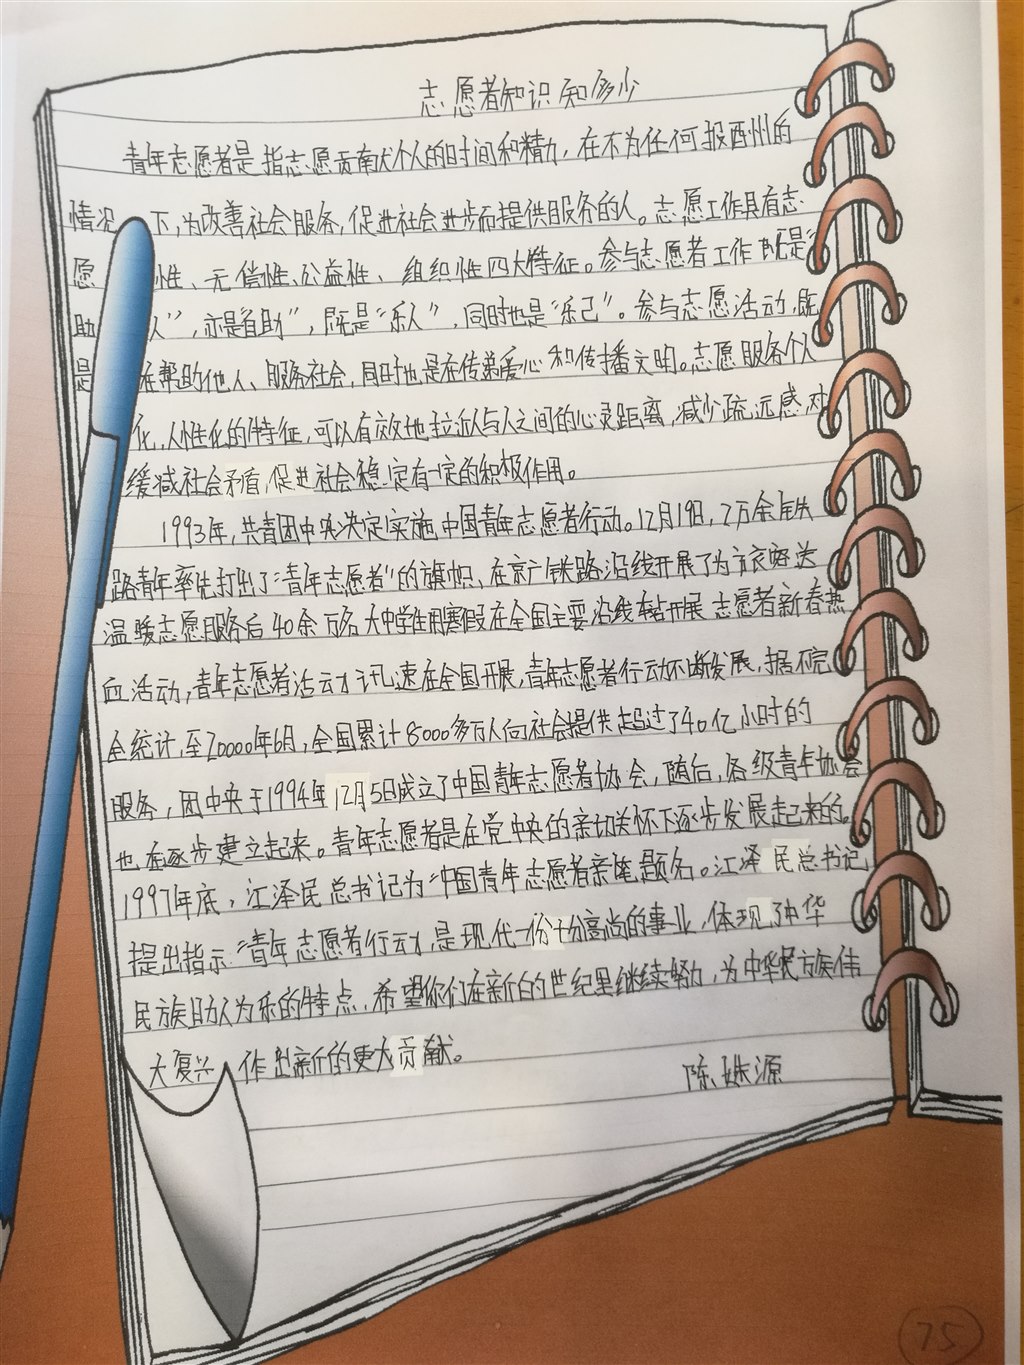 志愿者知识知多少
青年志愿者是指志愿贡献个人的时间和精力,在不为任何报酬的
情况下,为改善社会服务,促进社会进步而提供服务的人。志愿工作具有志
愿性、无偿性、公益性、组织性四大特征。参与志愿者工作既是“
助人”,亦是自助”,既是“乐人”,同时也是“乐己”。参与志愿活动,既
是在帮助他人、服务社会,同时也是在传递爱心和传播文明。志愿服务个人
化、人性化的特征,可以有效地拉近人与人之间的心灵距离,减少疏远感,对
缓减社会矛盾,促进社会稳定有一定的积极作用。
1993年,共青团中央决定实施中国青年志愿者行动。12月19日,2万余铁
路青年率先打出了“青年志愿者”的旗帜、在京广铁路沿线开展了为旅客送
温暖志愿服务后40余万名大中学生利用寒假在全国主要沿线车站开展志愿者新春热
血活动,青年志愿者活动迅速在全国开展,青年志愿者行动不断发展,据不完
全统计,至20000年6月,全国累计8000多万人向社会提供超过了40亿小时的
服务,团中央于1994年12月5日成立了中国青年志愿者协会,随后,各级青年协会
也在逐步建立起来。青年志愿者是在党中央的亲切关怀下逐步发展起来的。
1997年底,江泽民总书记为“中国青年志愿者亲笔题名。江泽民总书记
提出指示“青年志愿者行动,是现代一份十分高尚的事业,体现了中华
民族助人为乐的特点,希望你们在新的世纪里继续努力,为中华民族伟
大复兴,作出新的更大贡献。
陈姝源
75